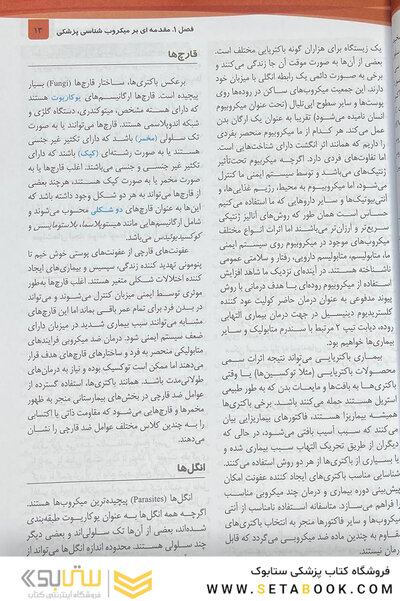 فصل ۱. مقدمه ای بر میکروب شناسی پزشکی
۱۳
یک زیستگاه برای هزاران گونه باکتریایی مختلف است.
بعضی از آن‌ها به صورت موقت آن جا زندگی می‌کنند و
برخی به صورت دائمی یک رابطه انگلی با میزبان خود
دارند. این جمعیت میکروب‌های ساکن در روده‌ها روی
پوست‌ها و سایر سطوح اپی‌تلیال (تحت عنوان میکروبیوم
انسان نامیده می‌شود) تقریبا به عنوان یک ارگان بدن
عمل می‌کند. هر کدام از ما میکروبیوم منحصر بفردی
را داریم که همانند اثر انگشت دارای شناخت‌هایی است.
اما تفاوت‌های فردی دارد. اگرچه میکروبیوم تحت‌تأثیر
ژنتیک‌های می‌باشد و توسط سیستم ایمنی ما کنترل
می‌شود، اما میکروبیوم به محیط، رژیم غذایی‌ها، و
آنتی‌بیوتیک‌ها و سایر داروهایی که ما استفاده می‌کنیم
حساس است همان طور که روش‌های آنالیز ژنتیکی
سریع‌تر و ارزان‌تر می‌باشند اما اثرات انواع مختلف
میکروب‌های موجود در میکروبیوم روی سیستم ایمنی
ما، متابولیسم، متابولیسم دارویی، رفتار و سلامتی عمومی
شناخته هستند. در آینده‌ای نزدیک ما شاهد افزایش
استفاده از میکروبیوم روده‌ای با هدف درمانی با روش
پیوند مدفوعی به عنوان درمان حاضر کولیت عود کننده
کلستریدیوم دیفیسیل در جهت درمان بیماری التهابی
روده، دیابت تیپ ۲ مرتبط با سندرم متابولیک و سایر
بیماری‌ها خواهیم بود.
بیماری باکتریایی می‌تواند نتیجه اثرات سمی
محصولات باکتریایی (مثلا توکسین‌ها) یا وقتی
باکتری‌ها به بافت‌ها و مایعات بدن که به طور طبیعی
استریل هستند حمله می‌کنند باشد. برخی باکتری‌ها
همیشه بیماریزا هستند، فاکتورهای بیماریزایی بیان
می‌کنند که سبب آسیب بافتی می‌شود، در حالی که
دیگران از طریق تحریک التهاب سبب بیماری شده و
یا بسیاری از باکتری‌ها از هر دو روش استفاده می‌کنند.
شناسایی مناسب باکتری‌های ایجاد کننده عفونت امکان
پیش‌بینی دوره بیماری و درمان چند میکروبی مناسب
را فراهم می‌سازد. متاسفانه استفاده نامناسب از آنتی
میکروب‌ها و سایر فاکتورها منجر به انتخاب باکتری‌های
مقاوم به چندین ماده ضد میکروبی می‌گردد که قابل
درمان نیستند.
قارچ‌ها
برعکس باکتری‌ها، ساختار قارچ‌ها (Fungi) بسیار
پیچیده است. قارچ‌ها ارگانیسم‌های یوکاریوت هستند
که دارای هسته مشخص، میتوکندری، دستگاه گلژی و
شبکه اندوپلاسمی هستند. قارچ‌ها می‌توانند یا به صورت
تک سلولی (مخمر) باشد که دارای تکثیر غیر جنسی
هستند یا به صورت رشته‌ای (کپک) باشند که دارای
تکثیر غیر جنسی و جنسی می‌باشند. اغلب قارچ‌ها یا به
صورت مخمر یا به صورت کپک هستند، هرچند بعضی
از قارچ‌ها می‌تواند به هر دو شکل وجود داشته باشد که
این‌ها به عنوان قارچ‌های دو شکلی محسوب می‌شوند و
شامل ارگانیسم‌هایی مانند هیستوپلاسما، بلاستومایسس و
کوکسیدیوئیدس می‌باشد.
عفونت‌های قارچی از عفونت‌های پوستی خوش خیم تا
پنومونی تهدید کننده زندگی، سپسیس و بیماری‌های ایجاد
کننده اختلالات شکلی متغیر هستند. اغلب قارچ‌ها به‌طور
موثری توسط ایمنی میزبان کنترل می‌شوند و می‌تواند
در بدن فرد برای تمام عمر باقی بماند اما این قارچ‌های
مشابه می‌توانند سبب بیماری شدید در میزبان دارای
ضعف سیستم ایمنی شود. درمان ضد میکروبی فرایندهای
متابولیکی منحصر به فرد و ساختارهای قارچ‌های هدف قرار
می‌دهند اما ممکن است توکسیک بوده و نیاز به درمان‌های
طولانی‌مدت باشد. همانند باکتری‌ها، استفاده گسترده از
عوامل ضد قارچی در بخش‌های بیمارستانی منجر به ظهور
مخمرها و قارچ‌هایی می‌شود که مقاومت ذاتی یا اکتسابی
را به چندین کلاس مختلف عوامل ضد قارچی را نشان
می‌دهند.
انگل‌ها
انگل‌ها (Parasites) پیچیده‌ترین میکروب‌ها هستند.
اگرچه همه انگل‌ها به عنوان یوکاریوت طبقه‌بندی
شده‌اند، بعضی از آن‌ها تک سلولی‌اند و بعضی دیگر
چند سلولی هستند. محدوده اندازه انگل‌ها می‌تواند از
فروشگاه کتاب پزشکی ستابوک
WWW.SETABOOK.COM
ستابوک
فروشگاه اینترنتی کتاب